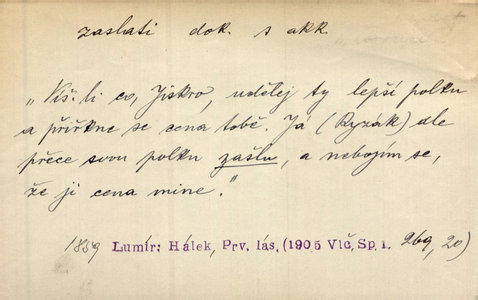 zaslati dok. s akk.
„Víš-li co, Jiskro, udělej ty lepší polku
a přiřkne se cena tobě. Já (Ryzák) ale
přece svou polku zašlu, a nebojím se,
že ji cena mine."
1859 Lumír: Hálek, Prv. lás, (1905 Vlč, Sp. 1. 269, 20)